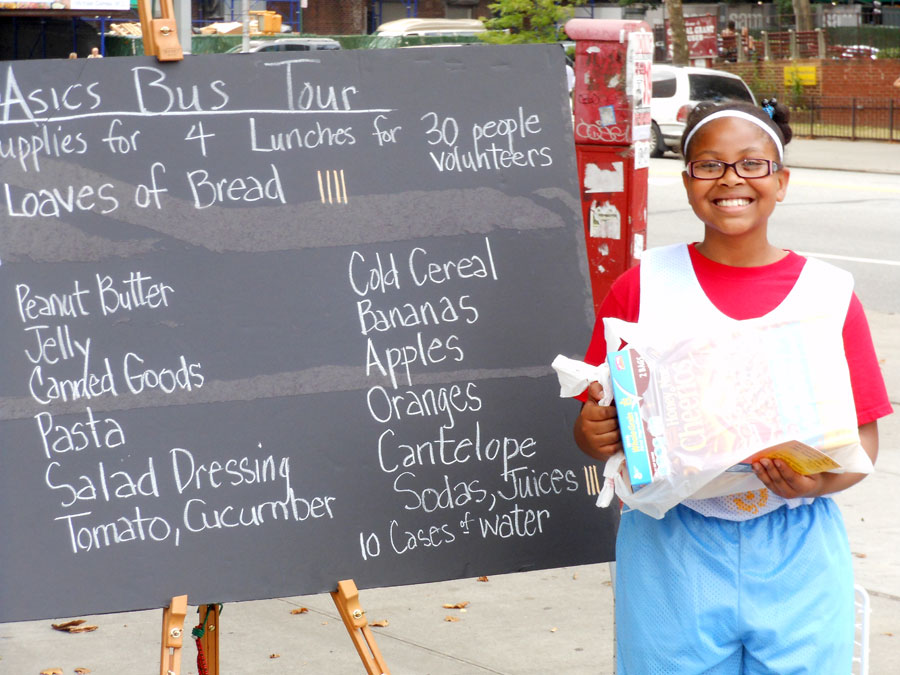 Asics Bus Tour
upplies for 4 Lunches for 30 people
volunteers
Loaves of Bread
Peanut Butter
Jelly
Canned Goods
Pasta
Salad Dressing
Tomato, Cucumber
Cold Cereal
Bananas
Apples
Oranges
Cantelope
Sodas, Juices
10 Cases of water
Honey Nut
Cheerios
2 BAGS